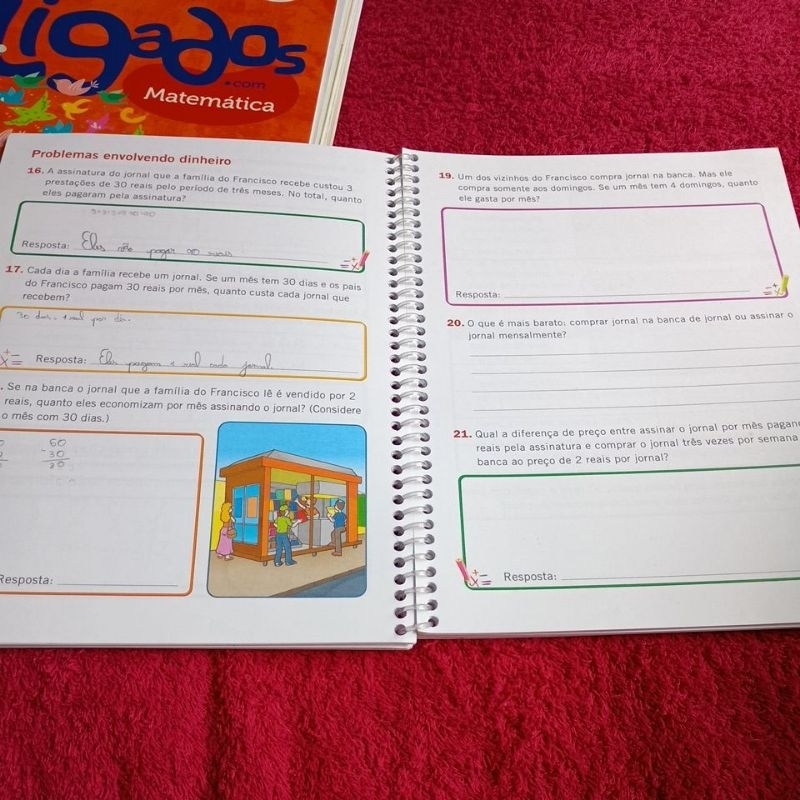 Ligados
.com
Matemática
Problemas envolvendo dinheiro
16. A assinatura do jornal que a família do Francisco recebe custou 3
prestações de 30 reais pelo período de três meses. No total, quanto
eles pagaram pela assinatura?
Resposta: Eles vão pagar 90 reais
17. Cada dia a família recebe um jornal. Se um mês tem 30 dias e os pais
do Francisco pagam 30 reais por mês, quanto custa cada jornal que
recebem?
30 dias. 1 real por dia.
Resposta: Eles pagam 1 real cada jornal
. Se na banca o jornal que a família do Francisco lê é vendido por 2
reais, quanto eles economizam por mês assinando o jornal? (Considere
o mês com 30 dias.)
60
-30
Resposta:
19. Um dos vizinhos do Francisco compra jornal na banca. Mas ele
compra somente aos domingos. Se um mês tem 4 domingos, quanto
ele gasta por mês?
Resposta:
20. O que é mais barato: comprar jornal na banca de jornal ou assinar o
jornal mensalmente?
21. Qual a diferença de preço entre assinar o jornal por mês pagan
reais pela assinatura e comprar o jornal três vezes por semana
banca ao preço de 2 reais por jornal?
Resposta: